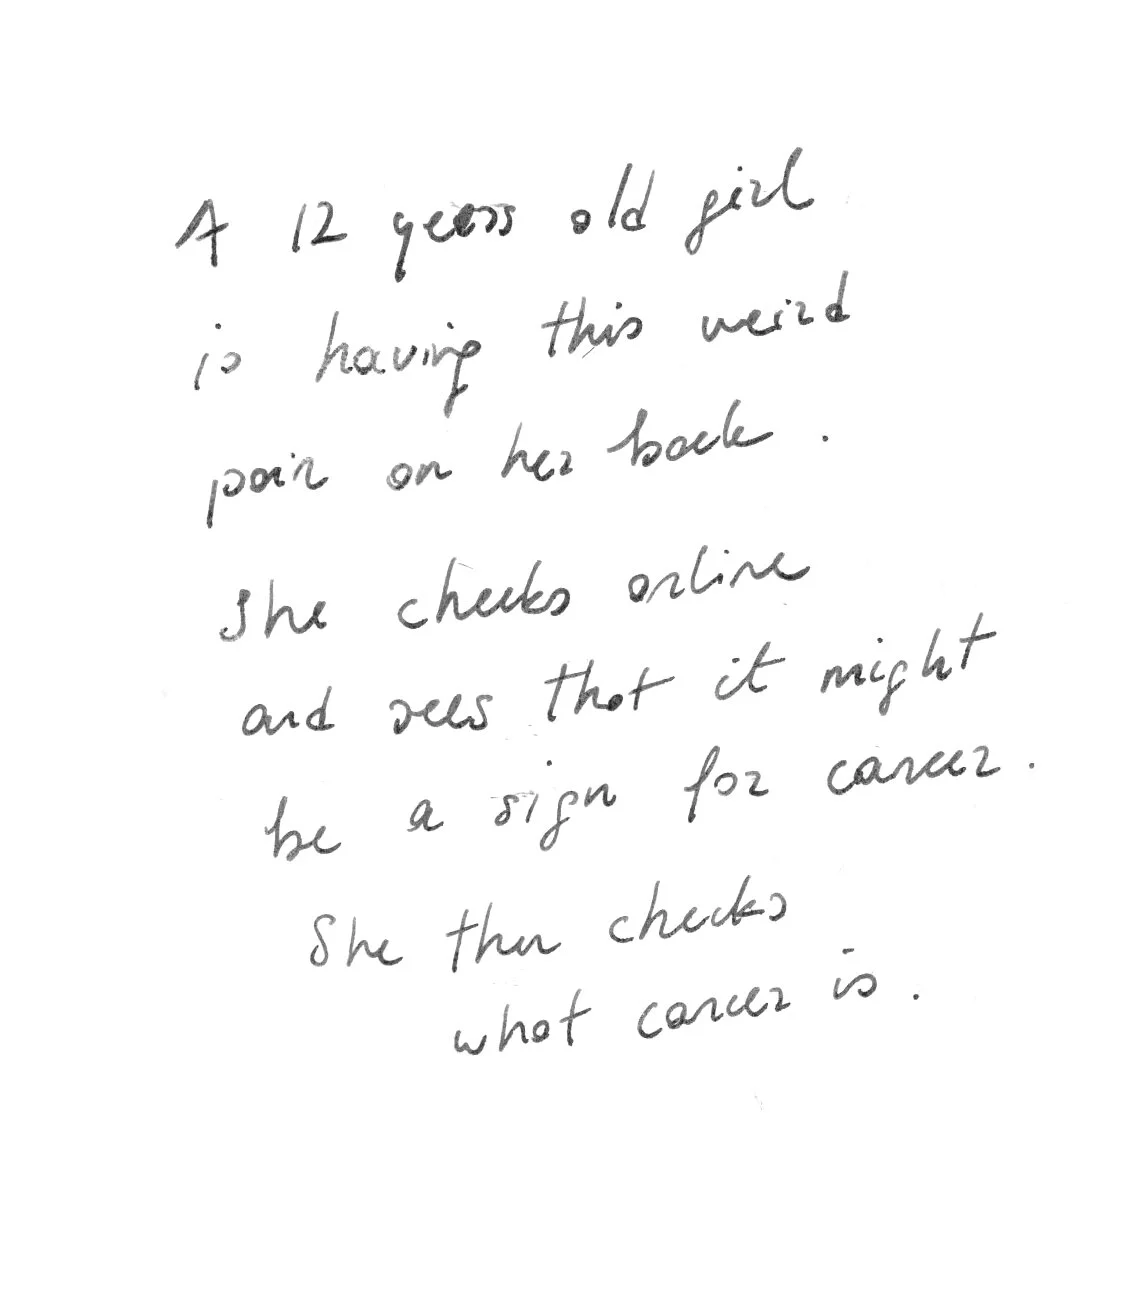 A 12 years old girl
is having this weird
pain on her back.
She checks online
and sees that it might
be a sign for cancer.
She then checks
what cancer is.